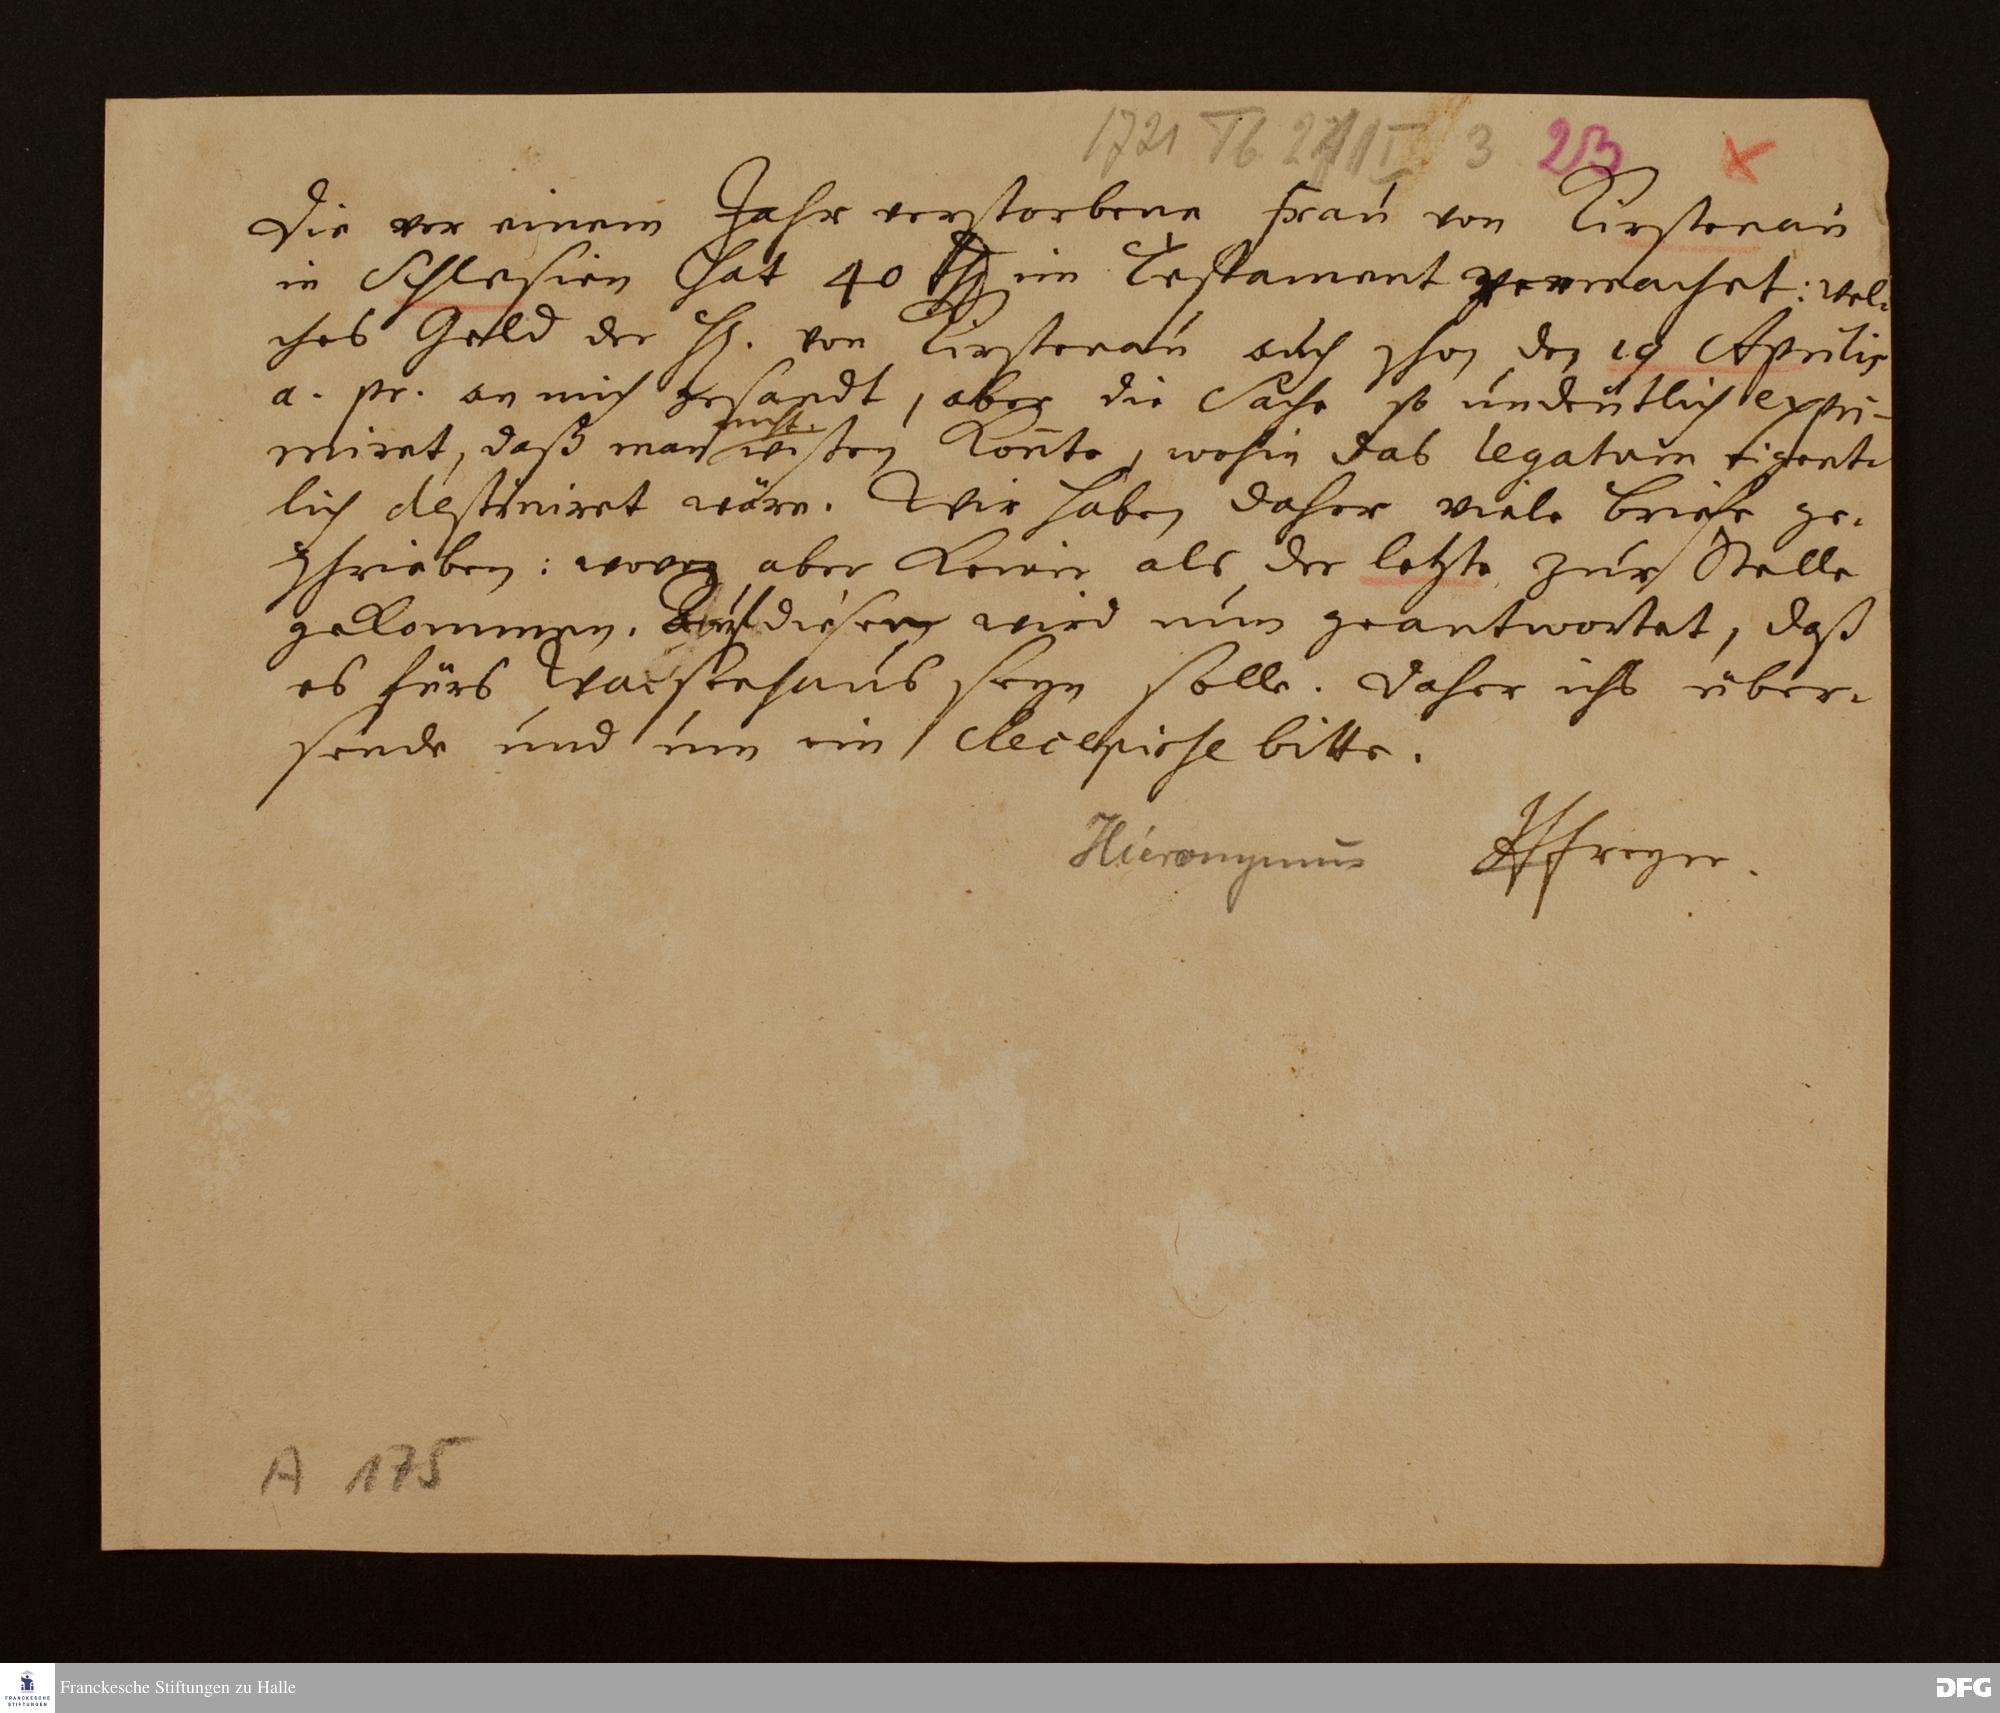 1721 Tb 27 III 3 23
Die vor einem Jahr verstorbene Frau von Kirstenau
in Schlesien hat 40 thl im Testament vermachet: wel-
ches Geld der H. von Kirstenau auch schon den 19 Aprilis
a. pr. an mich gesandt, aber die Sache so undeutlich expri-
miret, daß man nicht wißen konte, wohin das legatum eigent-
lich destiniret wäre. Wir haben daher viele briefe ge-
schrieben: wovon aber keiner als der letzte zur Stelle
gekommen. Auf diesen wird nun geantwortet, daß
es fürs Waisenhaus seyn solle. Daher ichs über-
sende und um ein Recepisse bitte.
Hieronymus Freyer.
A 175
Franckesche Stiftungen zu Halle
FRANCKESCHE
STIFTUNGEN
DFG